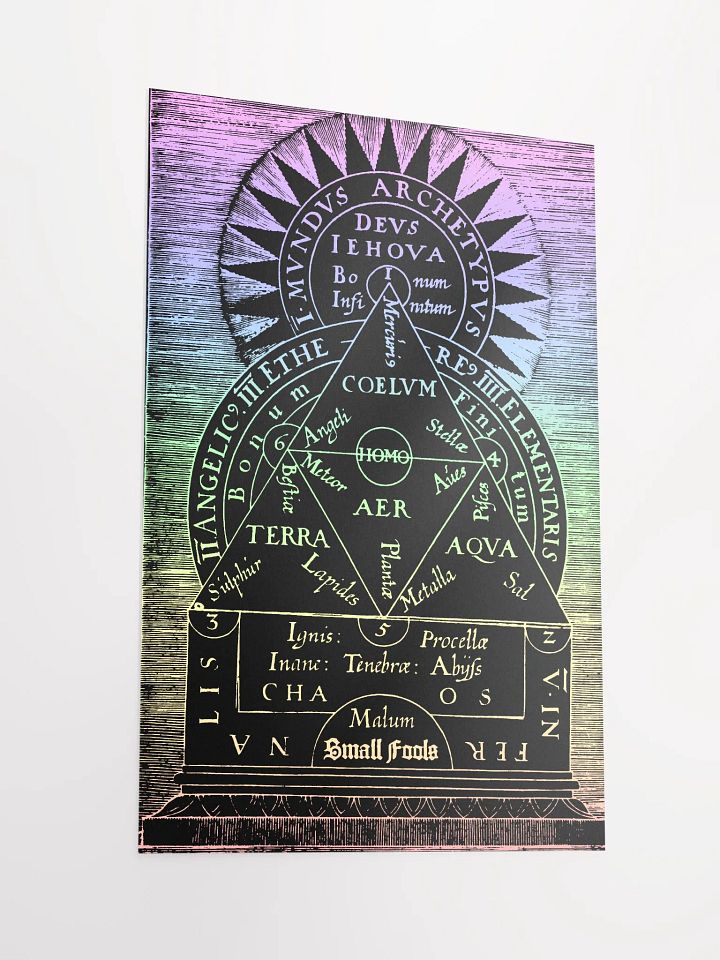 I · MVNDVS ARCHETYPVS
DEVS
IEHOVA
I
Bo num
Infi nitum
Mercuriꝰ
II ANGELICꝰ · III ETHE REꝰ IIII ELEMENTARIS
COELVM
Bonum
Fini tum
Angeli
Stellæ
6
HOMO
4
Bestiæ
Meteor
Aues
Pisces
AER
TERRA
AQVA
Sulphur
Lapides
Plantæ
Metalla
Sal
3
5
2
Ignis: Procellæ
Inane: Tenebræ: Abyss
CHA OS
V · IN FER NA LIS
Malum
Small Fools